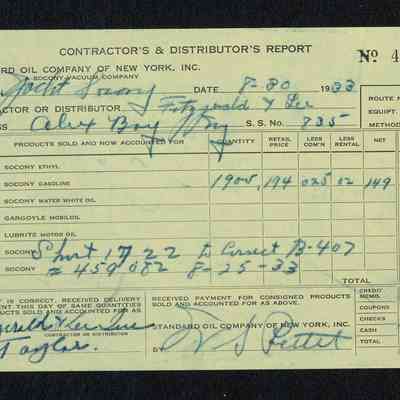 CONTRACTOR'S & DISTRIBUTOR'S REPORT
No 4
RD OIL COMPANY OF NEW YORK, INC.
A SOCONY-VACUUM COMPANY
Yacht Socony DATE 8-30 1933
ROUTE N
CTOR OR DISTRIBUTOR Fitzgerald & Lee
EQUIPT.
SS Alex Bay NY S. S. No. 735
METHOD
PRODUCTS SOLD AND NOW ACCOUNTED FOR QUANTITY RETAIL PRICE LESS COM'N LESS RENTAL NET
SOCONY ETHYL
SOCONY GASOLINE 1900 194 025 02 149
SOCONY WATER WHITE OIL
GARGOYLE MOBILOIL
LUBRITE MOTOR OIL
SOCONY Short 17 22 to Correct B-407
SOCONY # 459082 8-25-33
TOTAL
IS CORRECT. RECEIVED DELIVERY
MENT THIS DAY OF SAME QUANTITIES
ODUCTS SOLD AND ACCOUNTED FOR AS
RECEIVED PAYMENT FOR CONSIGNED PRODUCTS
SOLD AND ACCOUNTED FOR AS ABOVE.
STANDARD OIL COMPANY OF NEW YORK, INC.
CREDIT MEMO.
COUPONS
CHECKS
CASH
TOTAL
CONTRACTOR OR DISTRIBUTOR
Taylor.
BY